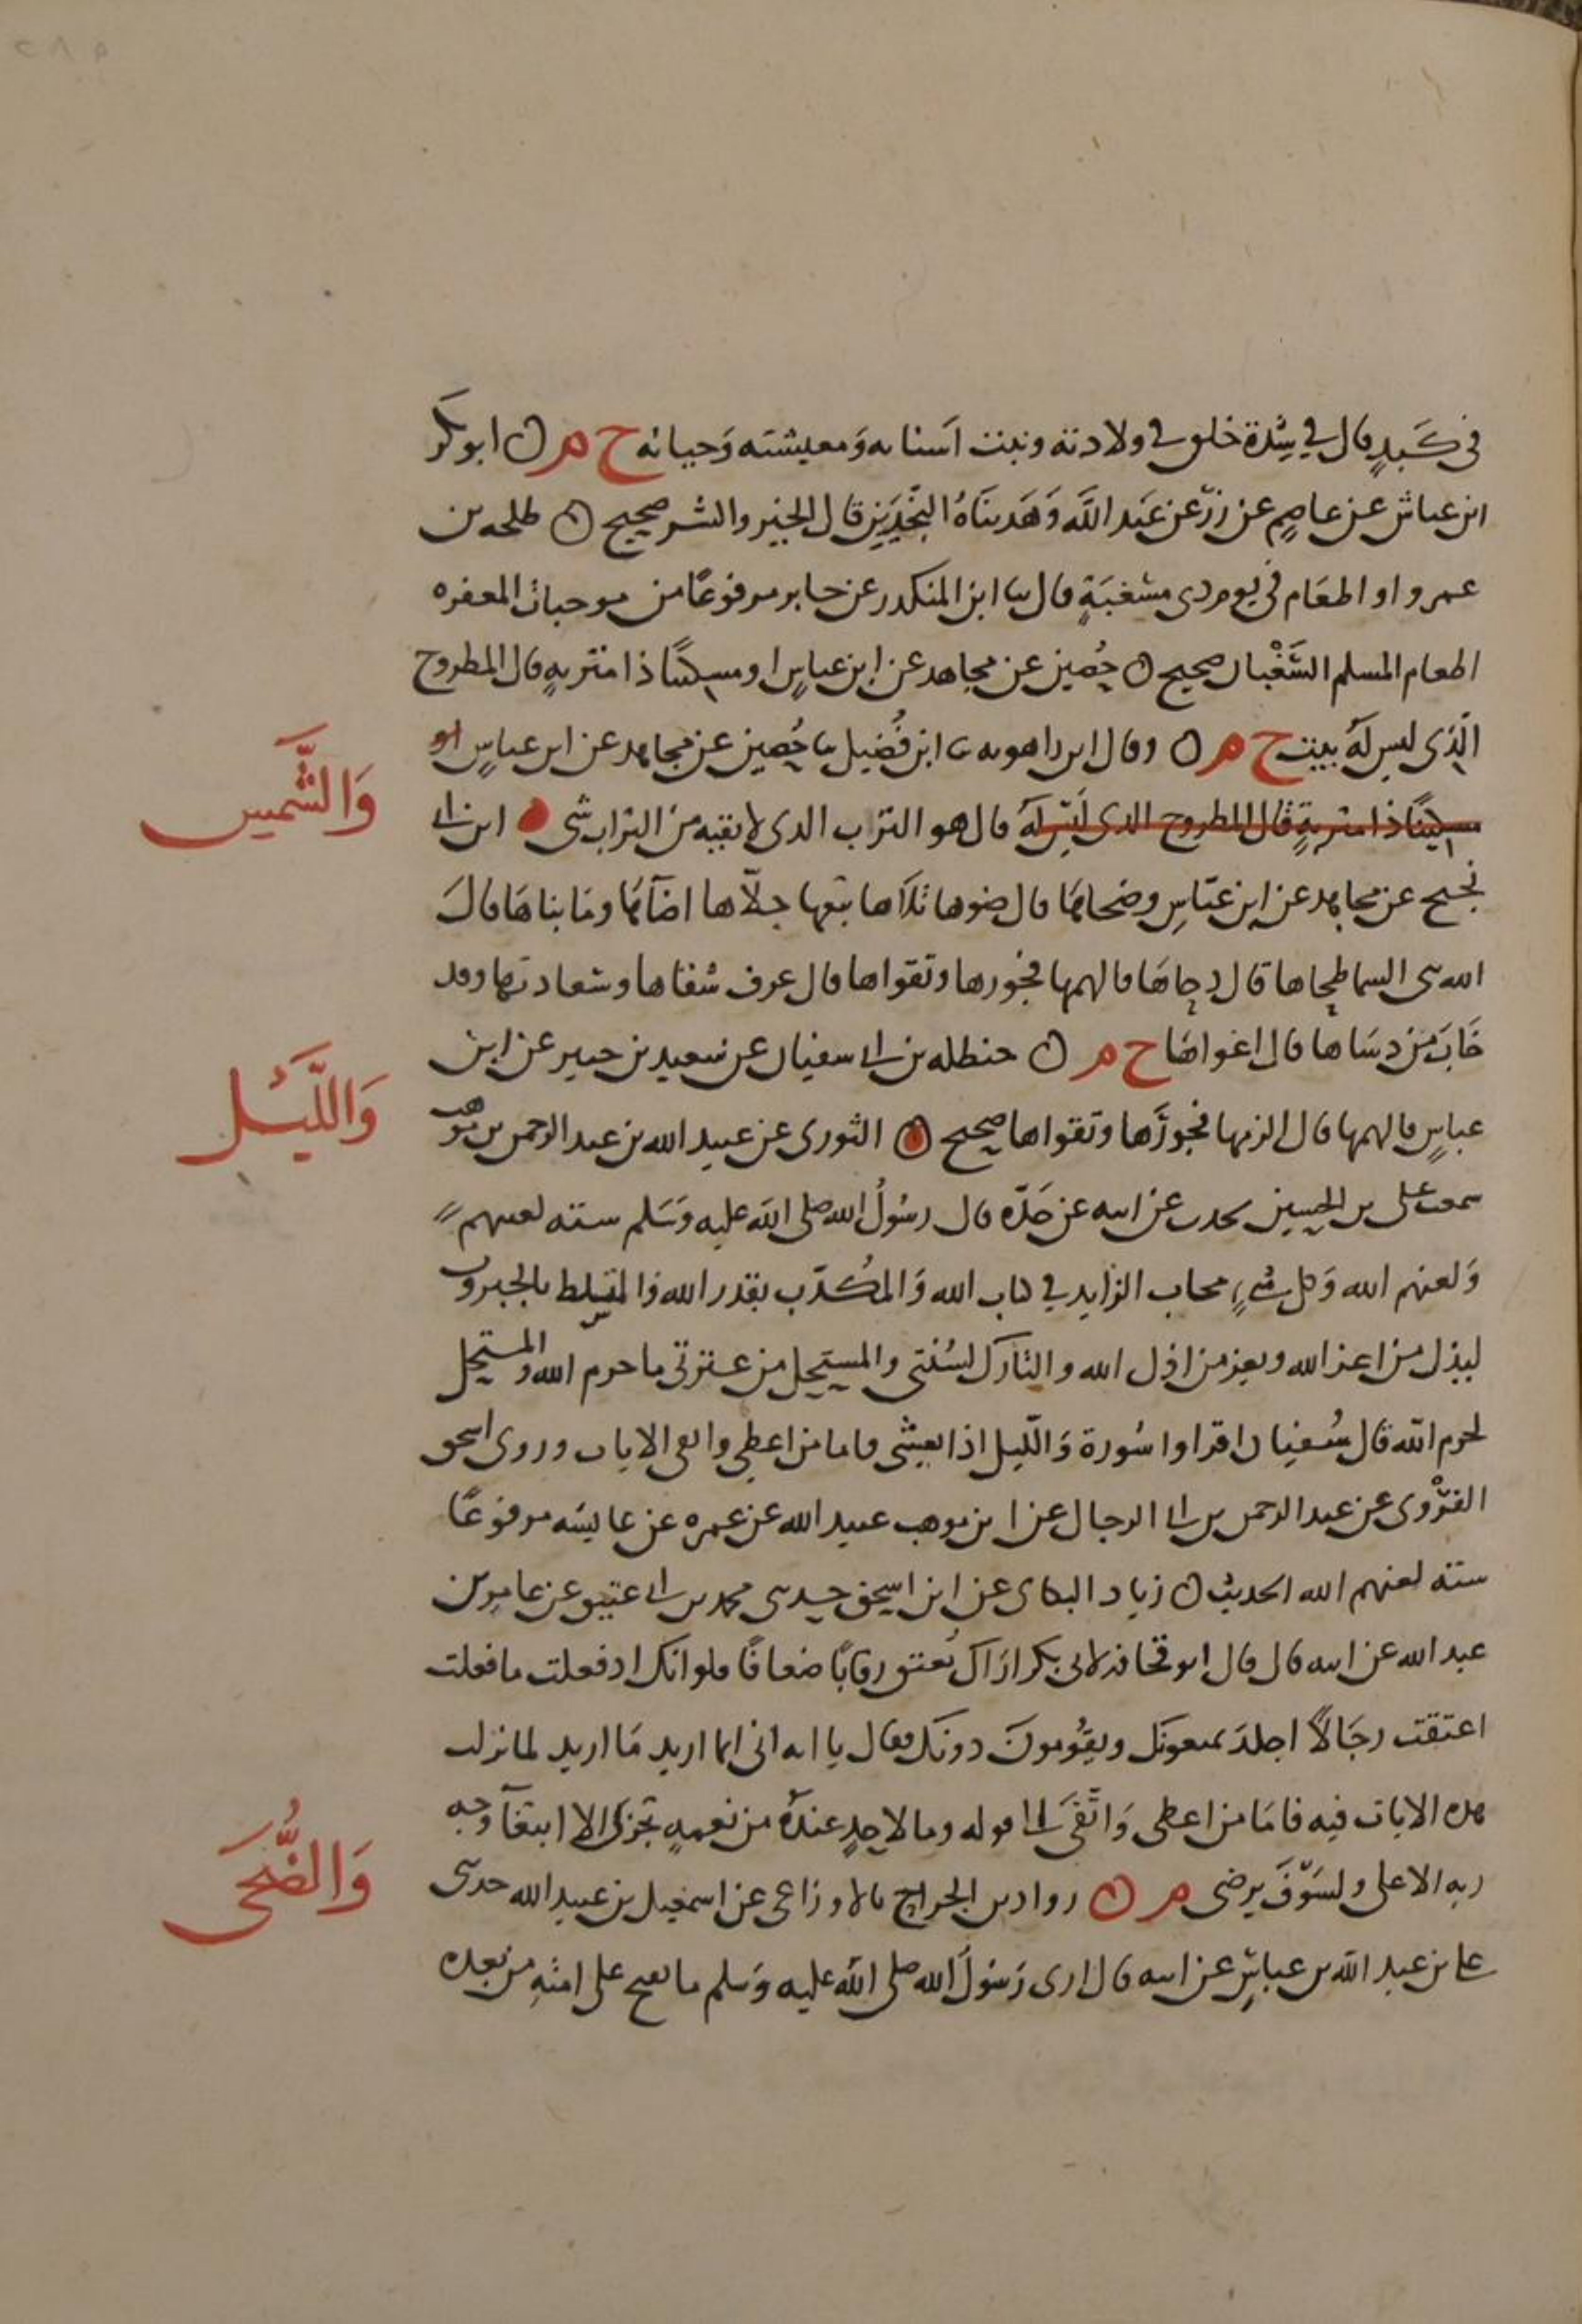 في كَبَدٍ قال في شِدة خلق في ولادته ونبت اسنانه وَمعيشته وَحياته خ م ابو بكر
ابن عياش عن عاصمٍ عن زرّ عن عَبد اللَّه وَهَديناهُ النَّجدَين قال الخير والشر صحيح طلحه بن
عمرو او اطعَام في يوم ذي مسغبَةٍ قال ثنا ابن المنكدر عن جابر مرفوعًا من موجبات المغفره
اطعام المسلم السَّغْبان صحيح حُصين عن مجاهد عن ابن عباسٍ او مسكينًا ذا متربهٍ قال المطروح
الَّذي ليس لهُ بيت خ م وقال ابن راهويه ثنا ابن فُضيل ثنا حُصين عن مجاهد عن ابن عباسٍ او
مسكينًا ذا متربةٍ قال المطروح الذي لَيس لهُ قال هو الترب الذي لا يقيه من التراب شي ابن ابي
نجيح عن مجاهد عن ابن عبّاسٍ وضحاها قال ضوها تلاها تبعها جلّاها اضآها وما بناها قال
الله بنى السما طحاها قال دحاهَا فالهمها فجورها وتقواها قال عرف شقاها وسعادتها وقد
خَابَ مَن دسَاها قال اغواهَا خ م حنظله بن ابي سفيان عن سعيد بن جبير عن ابن
عباسٍ فالهمها قال الزمها فجورَها وتقواها صحيح الثوري عن عبيد الله بن عبد الرحمن بن موهب
سمعت علي بن الحسين يحدث عن ابيه عن جَدّه قال رسُولُ الله صلى الله عليه وَسَلم سته لعنتهم
وَلعنهم الله وَكل نبيٍ مجاب الزايد في كتاب الله وَالمُكذّب بقدر الله والمتسلط بالجبروت
ليذل من اعز الله ويعز من اذل الله والتارك لسُنتي والمستحل من عترتي ما حرم الله والمستحل
لحرم الله قال سُفيان اقراوا سُورة وَالّليل اذا يغشى فاما من اعطى واتقى الايات وروى اسحق
الفَرْوي عن عبد الرحمن بن ابي الرجال عن ابن موهب عبيد الله عن عمره عن عايشه مرفوعًا
سته لعنهم الله الحديث زياد البكاي عن ابن اسحق حدثني محمد بن ابي عتيق عن عامر بن
عبد الله عن ابيه قال قال ابو قحافه لابي بكر اراك تُعتق رقابًا ضعافًا فلو انك اذ فعلت ما فعلت
اعتقت رجَالاً اجلدَ يمنعونَك ويقُومونَ دونَك فقال يا ابه اني انما اريد مَا اريد لما نزلت
هذه الايات فيه فامَا من اعطى وَاتّقَى الى قوله وما لاحدٍ عندَهُ من نعمهٍ تجزى الا ابتغآ وجه
ربه الاعلى ولسَوْفَ يرضى م رواد بن الجراح ثنا الاوزاعي عن اسمعيل بن عبيد الله حدثني
علي بن عبد الله بن عباسٍ عن ابيه قال اري رَسُولُ الله صلى الله عليه وَسلم ما يفتح على امتهِ من بعده
وَالشَّمس
وَاللَّيل
وَالضُّحَى